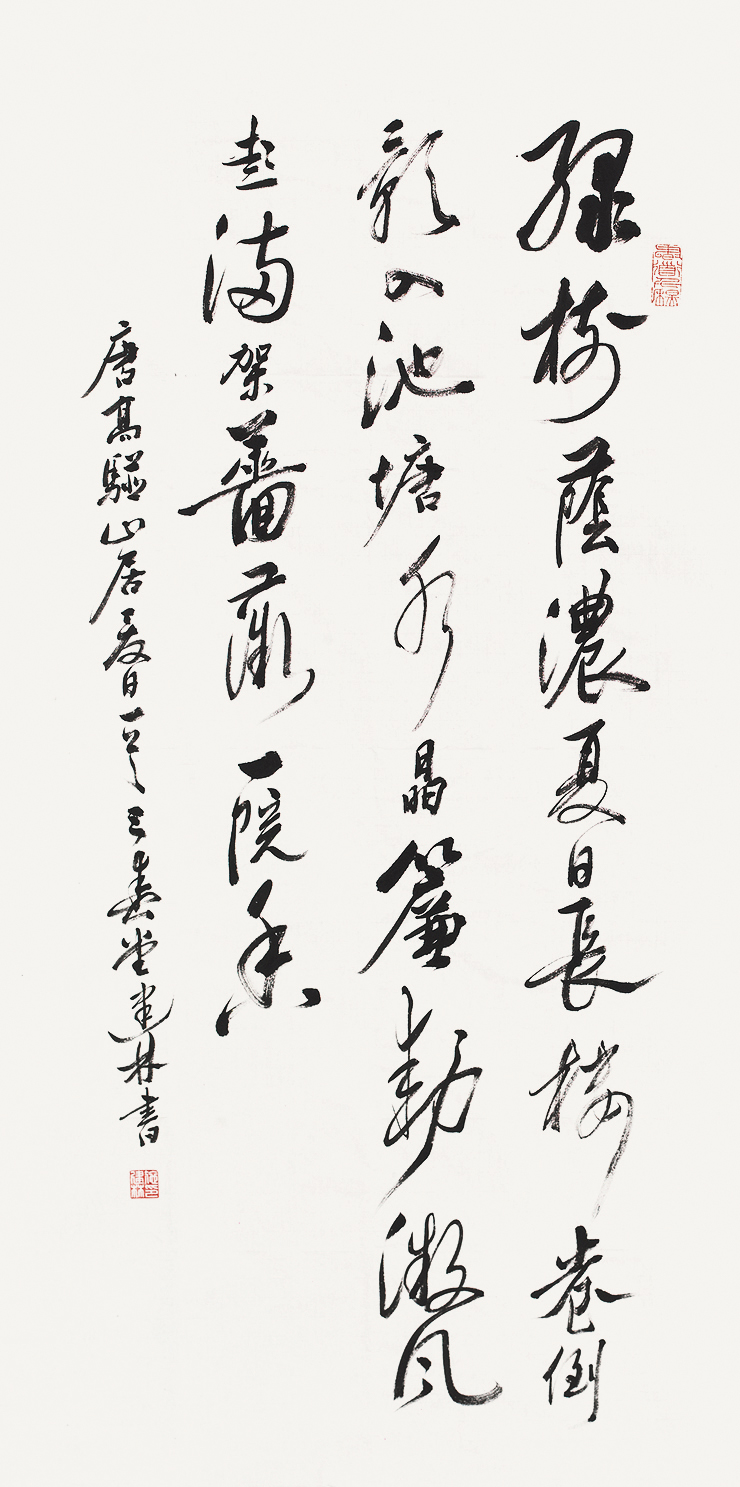 綠樹蔭濃夏日長樓臺倒
影入池塘水晶簾動微風
起滿架薔薇一院香
唐高駢山居夏日一首 堂建林書